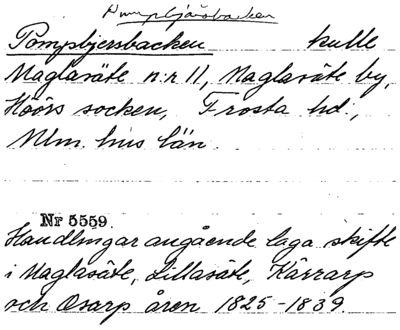 Pumpbjärsbacken
Pompbjersbacken kulle
Maglasäte n:r 11, Maglasäte by,
Höörs socken, Frosta hd.,
Mlm. hus län.
Nr 5559.
Handlingar angående laga skifte
i Maglasäte, Lillasäte, Kärrarp
och Osarp åren 1825-1839.